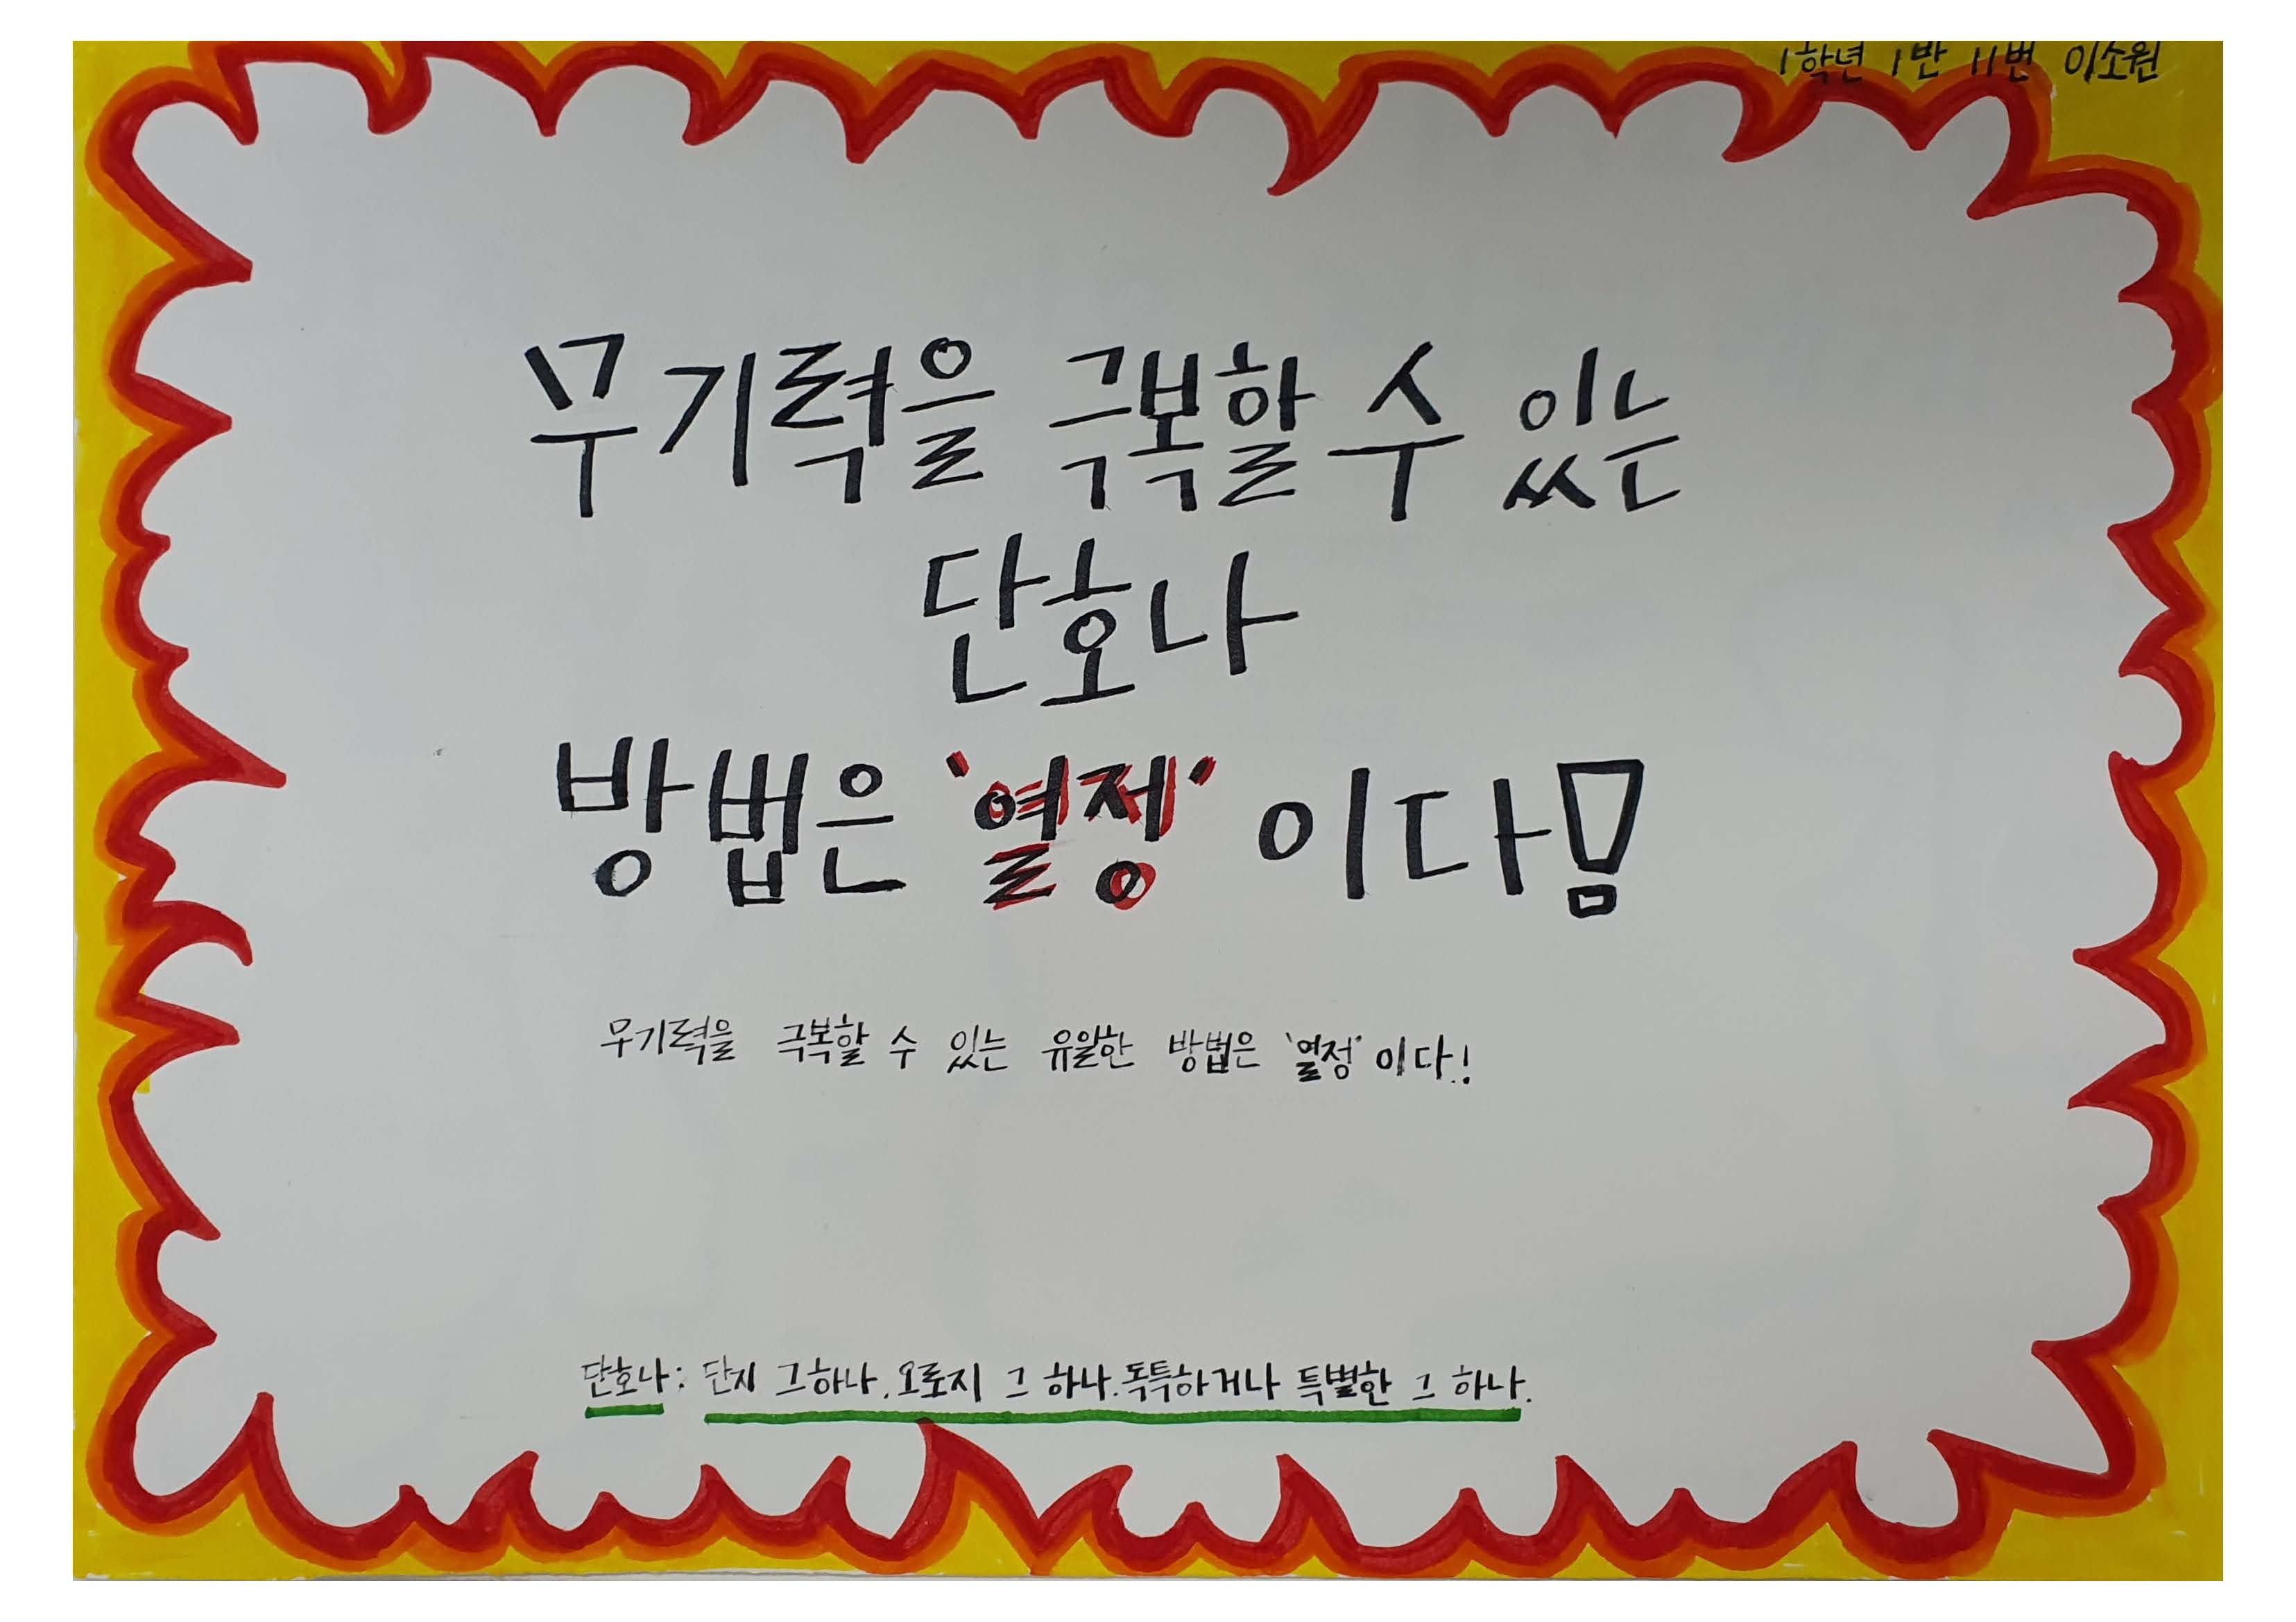 1학년 1반 11번 이소원
무기력을 극복할 수 있는
단호나
방법은 '열정' 이다!
무기력을 극복할 수 있는 유일한 방법은 '열정' 이다!
단호나: 단지 그하나. 오로지 그 하나. 독특하거나 특별한 그 하나.